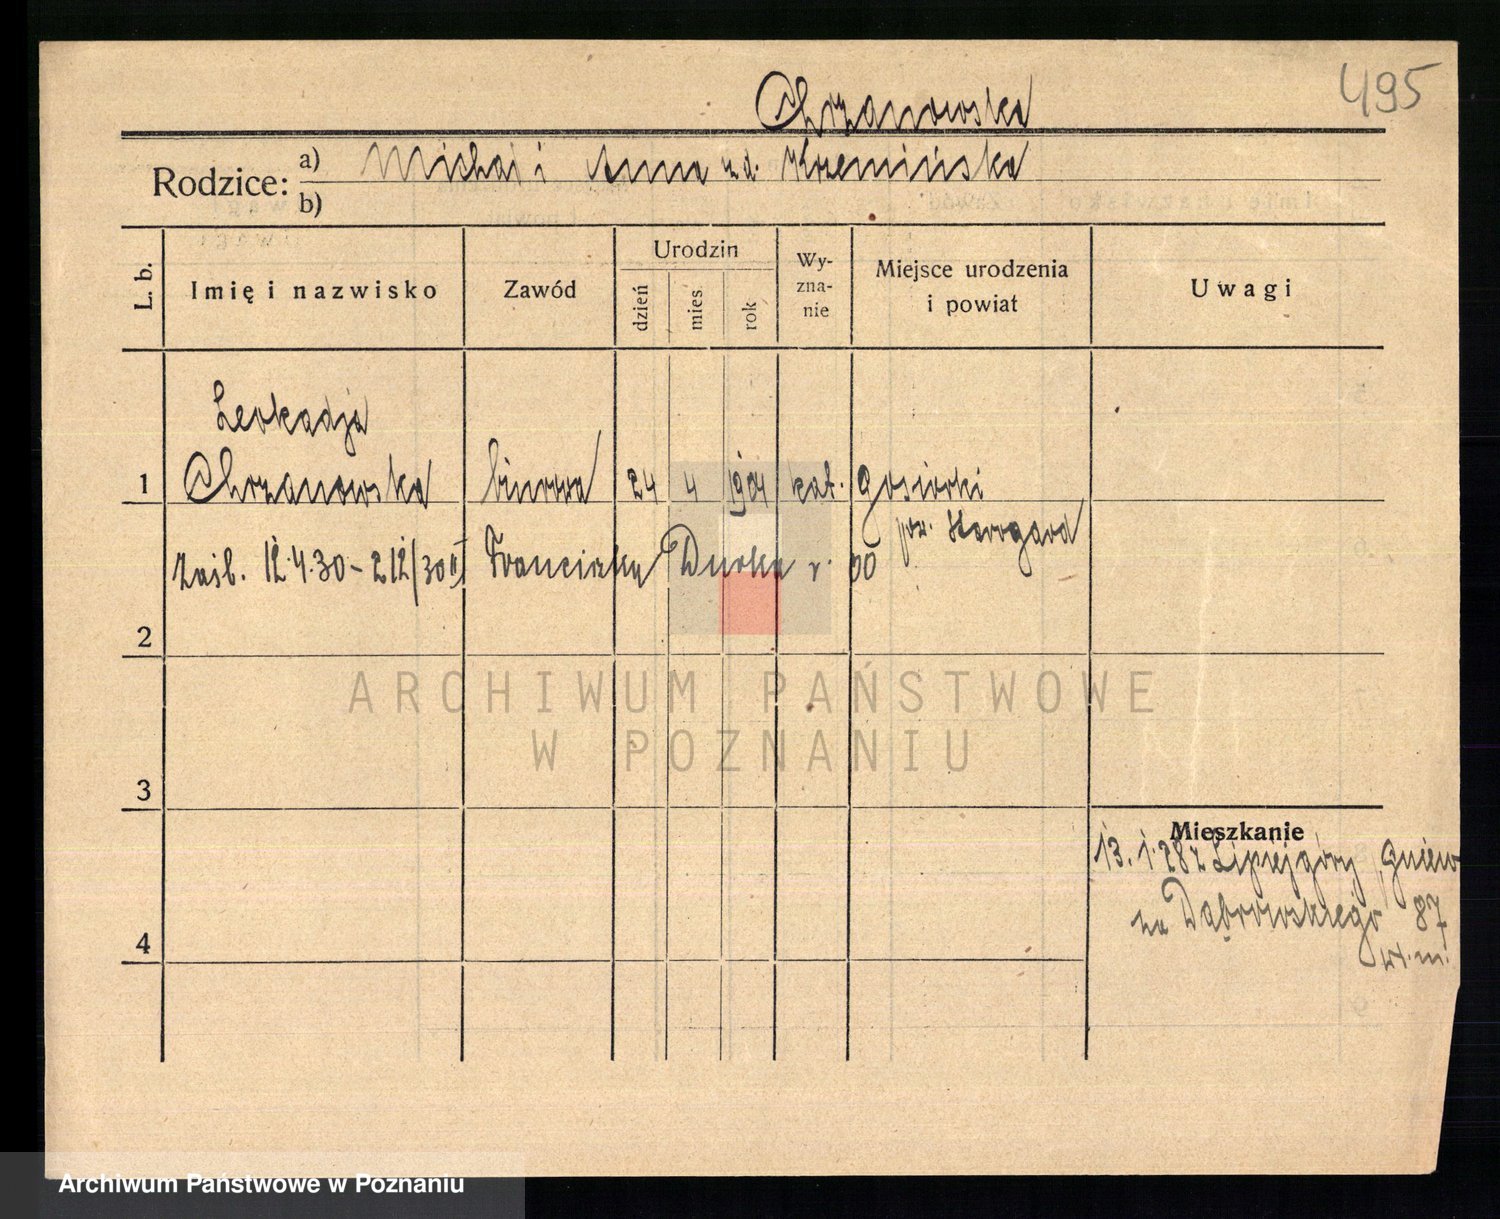 495
Chrzanowska
Rodzice:
a) Michał i Anna zd. Krzemińska
b)
L. b.
Imię i nazwisko
Zawód
Urodzin
dzień
mies.
rok
Wy-
zna-
nie
Miejsce urodzenia
i powiat
Uwagi
Leokadja
1 Chrzanowska biurowa 24 4 1904 kat. Gosiorki
pow. Starogard
zaśl. 12.4.30 - 212/30 II Franciszka Durka r. 00
2
3
4
Mieszkanie
13. 1. 28 z Lipiejgóry, Gniew
na Dąbrowskiego 87
m.
ARCHIWUM PAŃSTWOWE
W POZNANIU
Archiwum Państwowe w Poznaniu